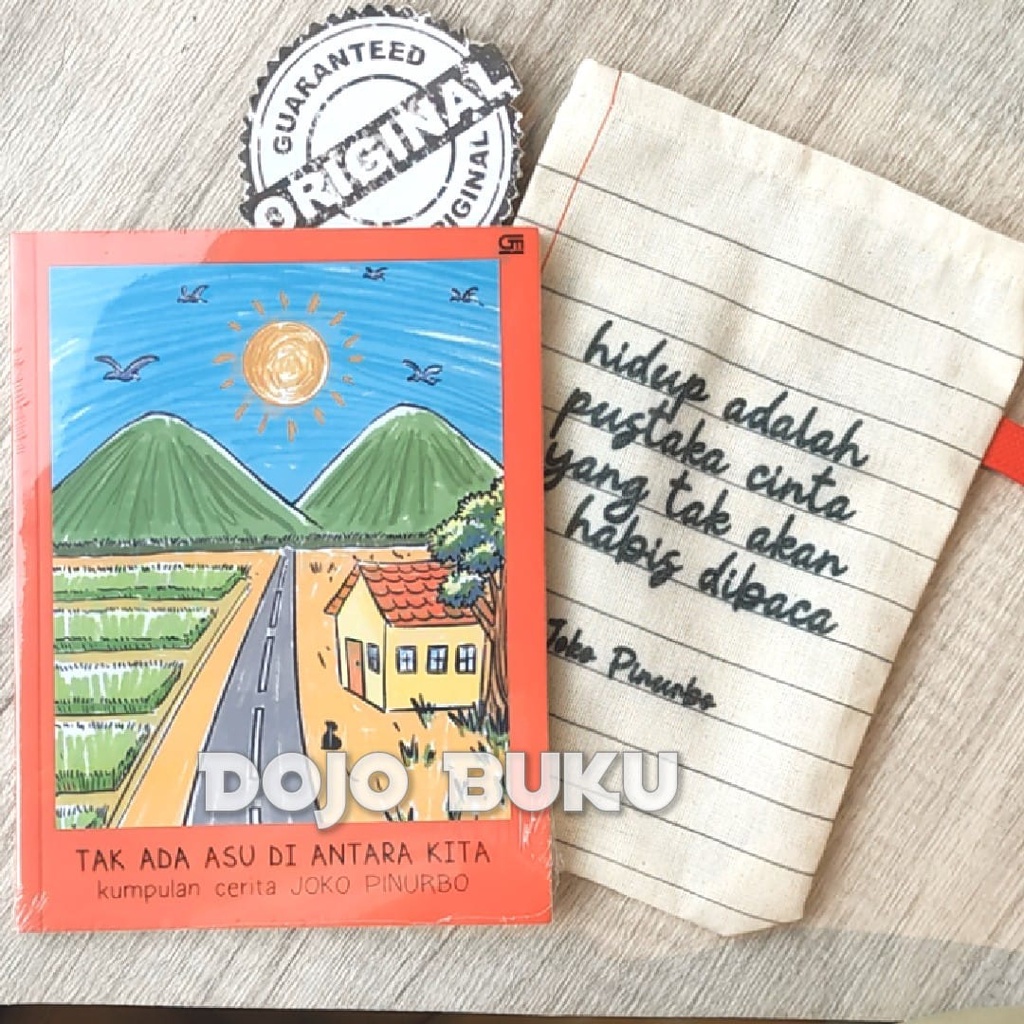 GUARANTEED
ORIGINAL
ORIGINAL
GM
hidup adalah
pustaka cinta
yang tak akan
habis dibaca
Joko Pinurbo
DOJO BUKU
TAK ADA ASU DI ANTARA KITA
kumpulan cerita JOKO PINURBO